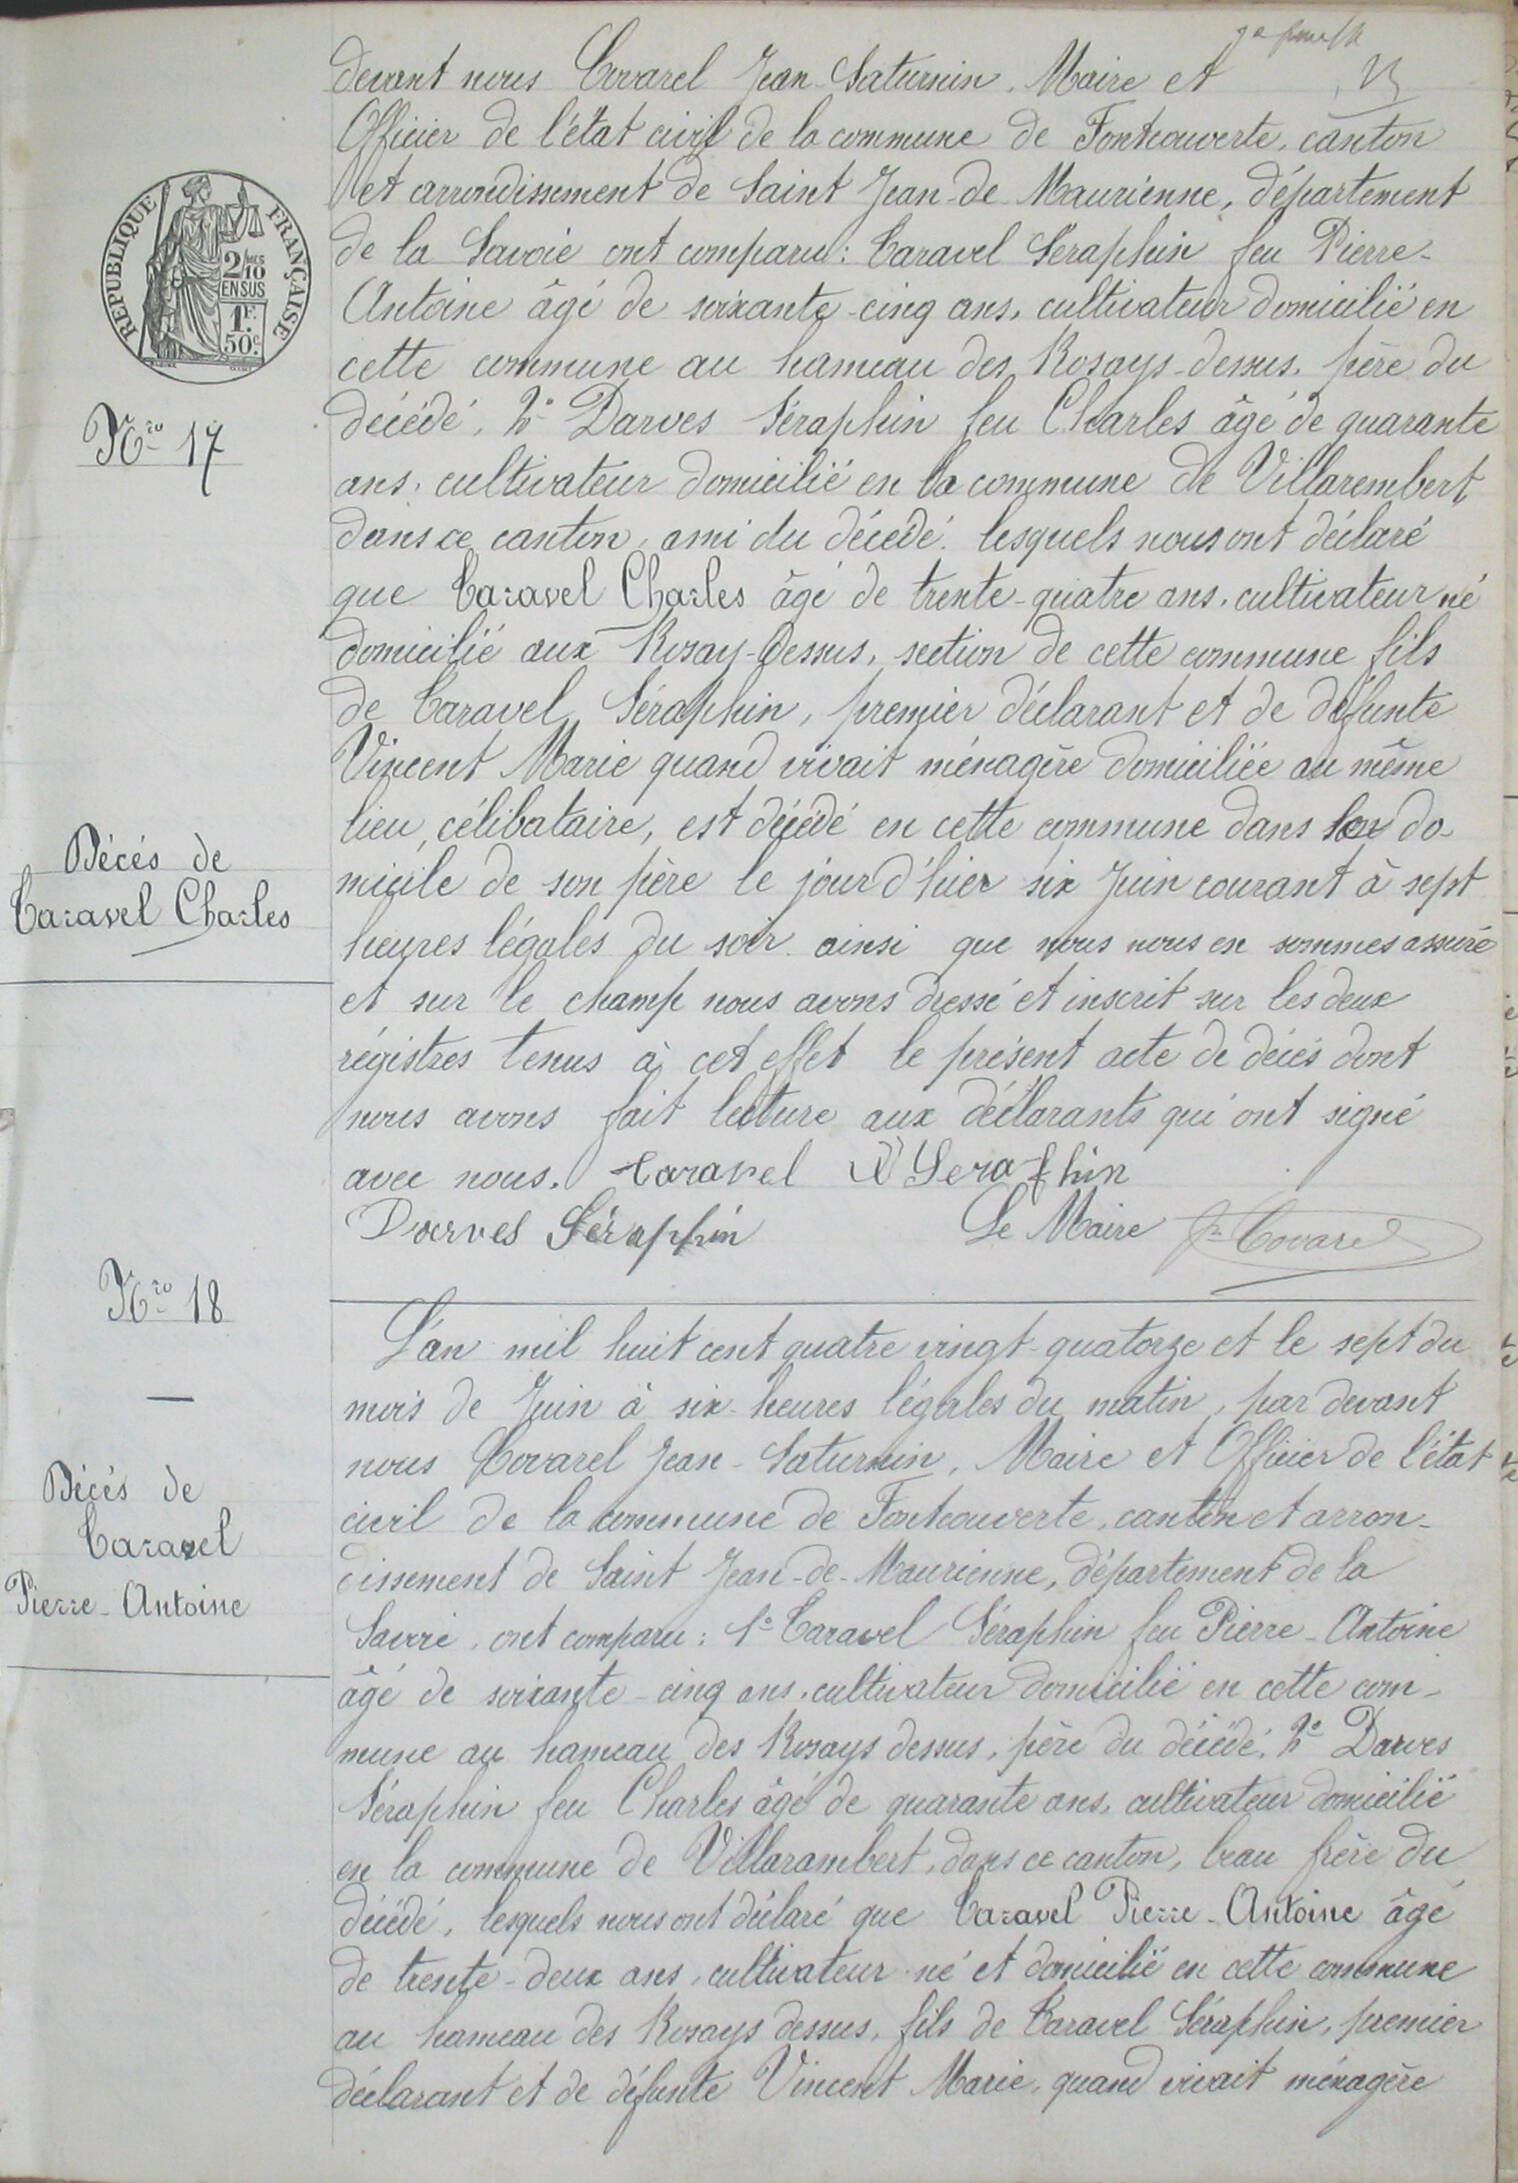 devant nous Covarel Jean-Saturnin, Maire et
Officier de l'état civil de la commune de Fontcouverte, canton
et arrondissement de Saint Jean-de-Maurienne, département
de la Savoie ont comparu : Caravel Séraphin feu Pierre-
Antoine âgé de soixante-cinq ans, cultivateur domicilié en
cette commune au hameau des Rosays-dessus, père du
décédé, 2° Darves Séraphin feu Charles âgé de quarante
ans, cultivateur domicilié en la commune de Villarembert
dans ce canton, ami du décédé. lesquels nous ont déclaré
que Caravel Charles âgé de trente-quatre ans, cultivateur né
domicilié aux Rosay-Dessus, section de cette commune fils
de Caravel Séraphin, premier déclarant et de défunte
Vincent Marie quand vivait ménagère domiciliée au même
lieu, célibataire, est décédé en cette commune dans son do-
micile de son père le jour d'hier six Juin courant à sept
heures légales du soir ainsi que nous nous en sommes assuré
et sur le champ nous avons dressé et inscrit sur les deux
régistres tenus à cet effet le présent acte de décés dont
nous avons fait lecture aux déclarants qui ont signé
avec nous. Caravel Seraphin
Darves Séraphin Le Maire Jn Covarel
RÉPUBLIQUE FRANÇAISE
2/10 MES
EN SUS
1F.
50c.
Nro 17
Décés de
Caravel Charles
Nro 18
Décés de
Caravel
Pierre-Antoine
L'an mil huit cent quatre vingt-quatorze et le sept du
mois de Juin à six heures légales du matin, par devant
nous Covarel Jean-Saturnin, Maire et Officier de l'état
civil de la commune de Fontcouverte, canton et arron-
dissement de Saint Jean-de-Maurienne, département de la
Savoie, ont comparu : 1° Caravel Séraphin feu Pierre-Antoine
âgé de soixante-cinq ans, cultivateur domicilié en cette com-
mune au hameau des Rosays dessus, père du décédé, 2° Darves
Séraphin feu Charles âgé de quarante ans, cultivateur domicilié
en la commune de Villarambert, dans ce canton, beau frère du
décédé, lesquels nous ont déclaré que Caravel Pierre-Antoine âgé
de trente-deux ans, cultivateur né et domicilié en cette commune
au hameau des Rosays dessus, fils de Caravel Séraphin, premier
déclarant et de défunte Vincent Marie, quand vivait ménagère